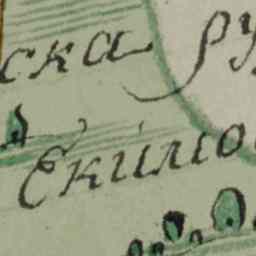 ска ру
Екимо